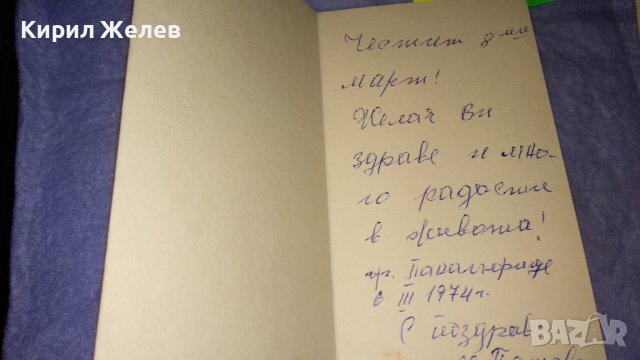 Кирил Желев
Честит 8ми
март!
Желая Ви
здраве и мно-
го радости
в живота!
гр. Панагюрище
6 III 1974 г.
С поздрав
BAZAR